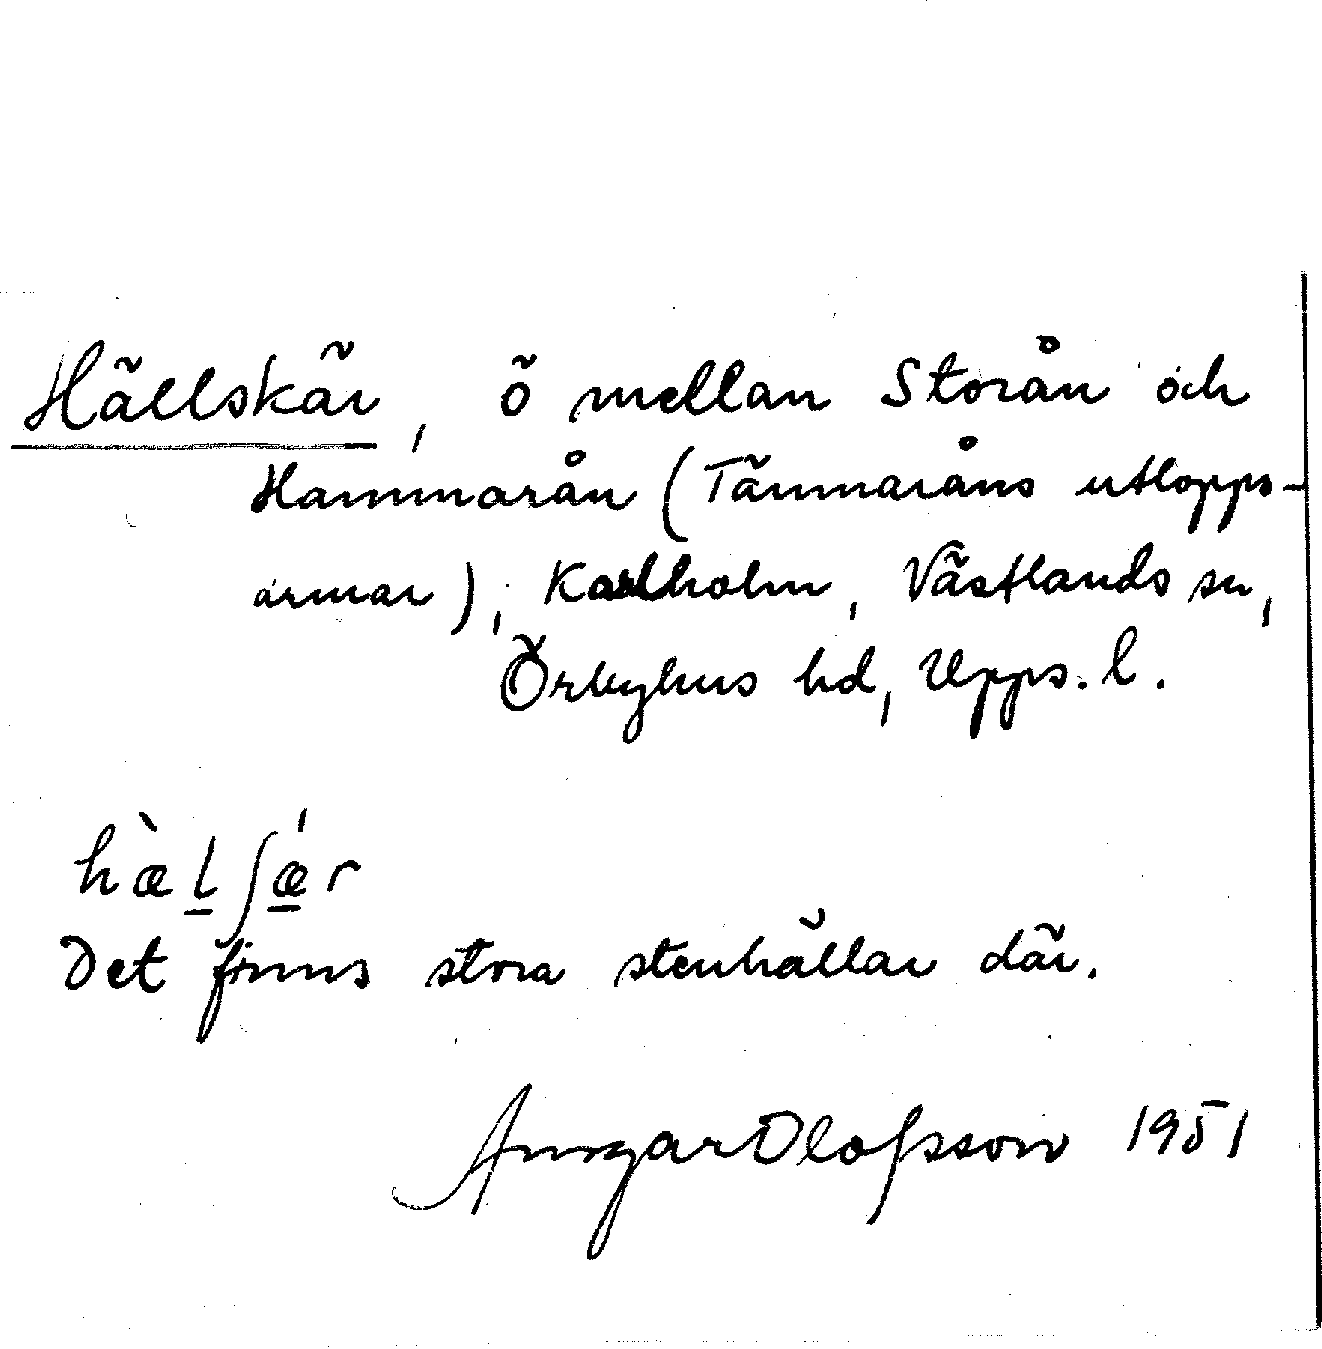 Hällskär, ö mellan Storån och
Hammarån (Tämnaråns utlopps-
armar), Karlholm, Västlands sn,
Örbyhus hd, Upps. l.
hæ̀l̲ʃǽ̲r
Det finns stora stenhällar där.
Ansgar Olofsson 1951